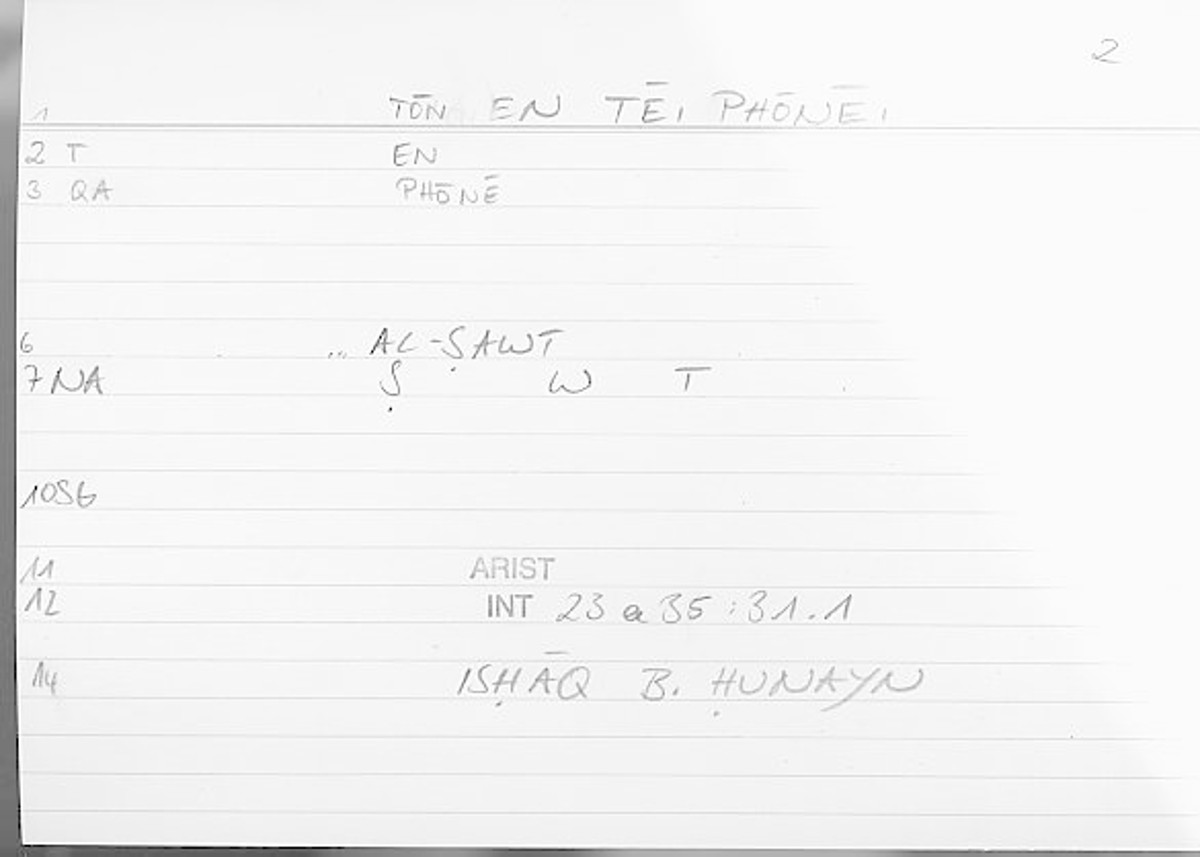 2
1 TŌN EN TĒI PHŌNĒI
2 T EN
3 QA PHŌNĒ
6 ... AL-ṢAWT
7 NA Ṣ W T
10 SG
11 ARIST
12 INT 23 a 35 : 31.1
14 ISḤĀQ B. ḤUNAYN